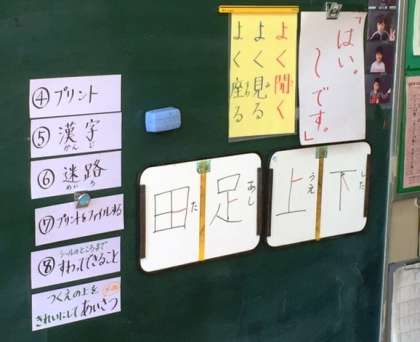 ④プリント
⑤漢字
かんじ
⑥迷路
めいろ
⑦プリントをファイルする
⑧シールのところまで
すわってできること
つくえの上を
きれいにしてあいさつ
よく聞く
よく見る
よく座る
「はい。
〜です。」
田
た
足
あし
上
うえ
下
した